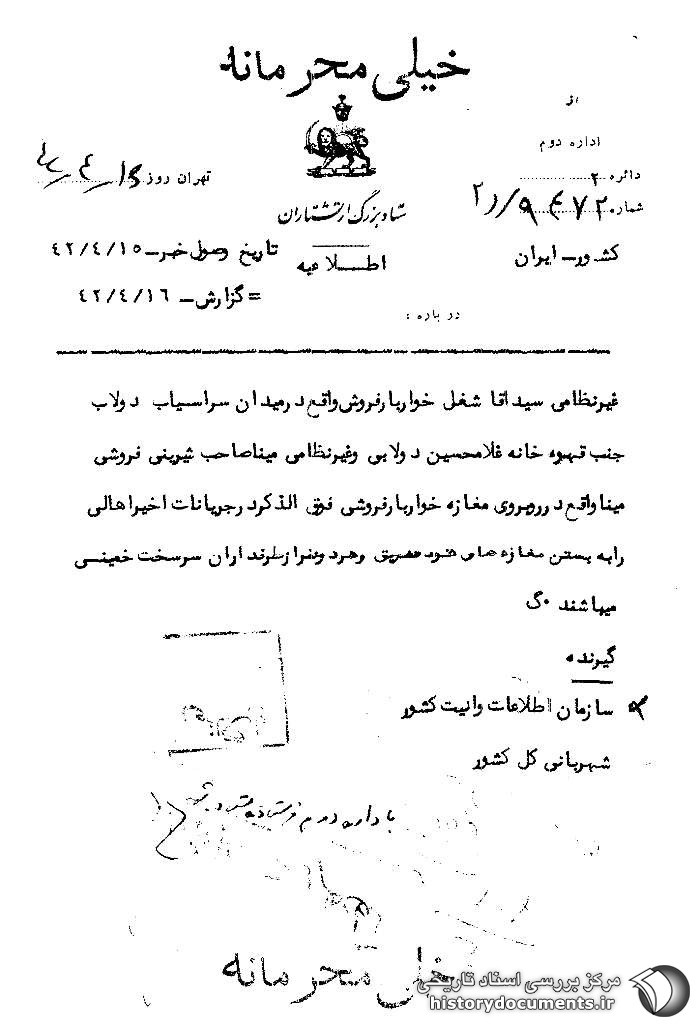 خیلی محرمانه
از
اداره دوم
دائره ۲
شماره ۲۰ ۹۴۷ / ۲ر
کشور ـ ایران
تهران روز
ستاد بزرگ ارتشتاران
اطلاعیه
تاریخ وصول خبر ـ ۴۲/۴/۱۵
= گزارش ـ ۴۲/۴/۱۶
درباره :
غیرنظامی سیداقا شغل خواربارفروش واقع در میدان سراسیاب دولاب
جنب قهوه خانه غلامحسین دولابی وغیرنظامی میناصاحب شیرینی فروشی
میناواقع درروبروی مغازه خواربارفروشی فوق الذکردرجریانات اخیراهالی
رابه بستن مغازه های خود وهردونفرازطرفداران سرسخت خمینی
میباشند ۰گ
گیرنده
سازمان اطلاعات وانیت کشور
شهربانی کل کشور
باداره دوم فرستاده
خیلی محرمانه
مرکز بررسی اسناد تاریخی
historydocuments.ir